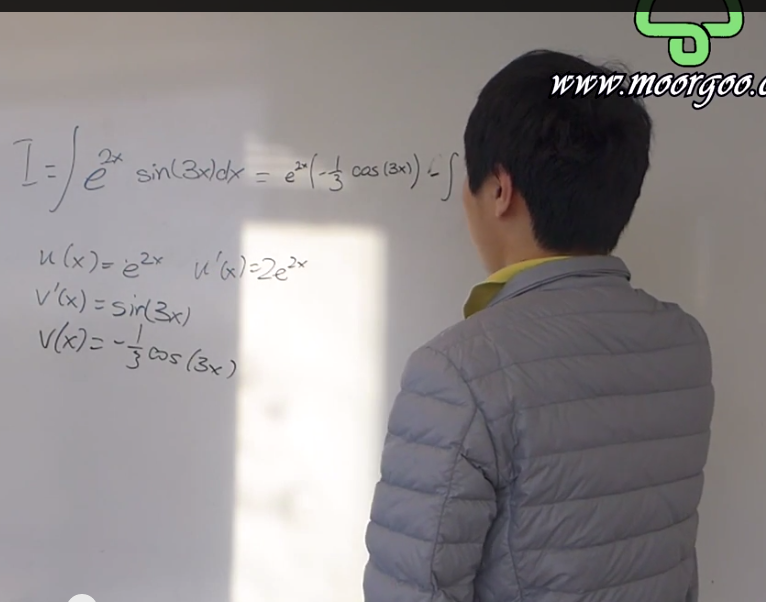 www.moorgoo.c
I = ∫ e^{2x} sin(3x)dx = e^{2x}(-1/3 cos(3x)) - ∫
u(x) = e^{2x} u'(x) = 2e^{2x}
v'(x) = sin(3x)
v(x) = -1/3 cos(3x)